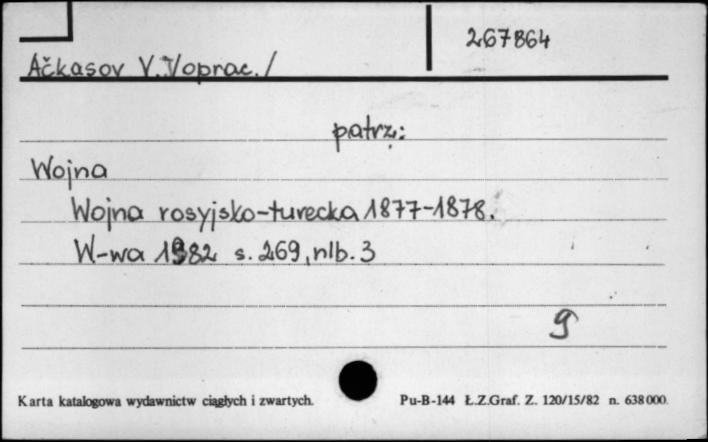 267864
Ačkasov V. /oprac./
patrz:
Wojna
Wojna rosyjsko-turecka 1877-1878.
W-wa 1982 s. 269, nlb. 3
9
Karta katalogowa wydawnictw ciągłych i zwartych.
Pu-B-144 Ł.Z.Graf. Z. 120/15/82 n. 638000.